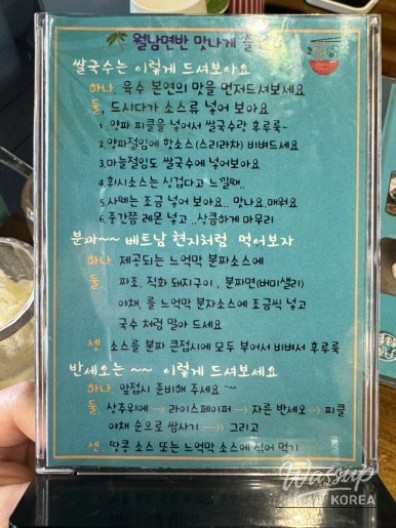 월남면반 맛나게 즐
쌀국수는 이렇게 드셔보아요
하나. 육수 본연의 맛을 먼저드셔보세요
둘, 드시다가 소스류 넣어 보아요
1. 양파 피클을 넣어서 쌀국수랑 후루룩~
2. 양파절임에 핫소스(스리라차) 비벼드세요
3.마늘절임도 쌀국수에 넣어보아요
4.휘시소스는 싱겁다고 느낄때..
5.사떼는 조금 넣어 보아요.. 맛나요.매워요
6. 중간쯤 레몬 넣고 ..상큼하게 마무리
분짜~~ 베트남 현지처럼 먹어보자
하나. 제공되는 느억막 분짜소스에
둘. 파조, 직화 돼지구이, 분짜면(버미샐리)
야채, 를 느억막 분자소스에 조금씩 넣고
국수 처럼 말아 드세요
셋. 소스를 분짜 큰접시에 모두 부어서 비벼서 후루룩
반세오는 ~~ 이렇게 드셔보세요
하나 앞접시 준비해 주세요 ^^
둘 상추위에 --> 라이스페이퍼 --> 자른 반세오 --> 피클
야채 순으로 쌈싸기 --> 그리고
셋 땅콩 소스 또는 느억막 소스에 찍어 먹기
Wassup
KOREA